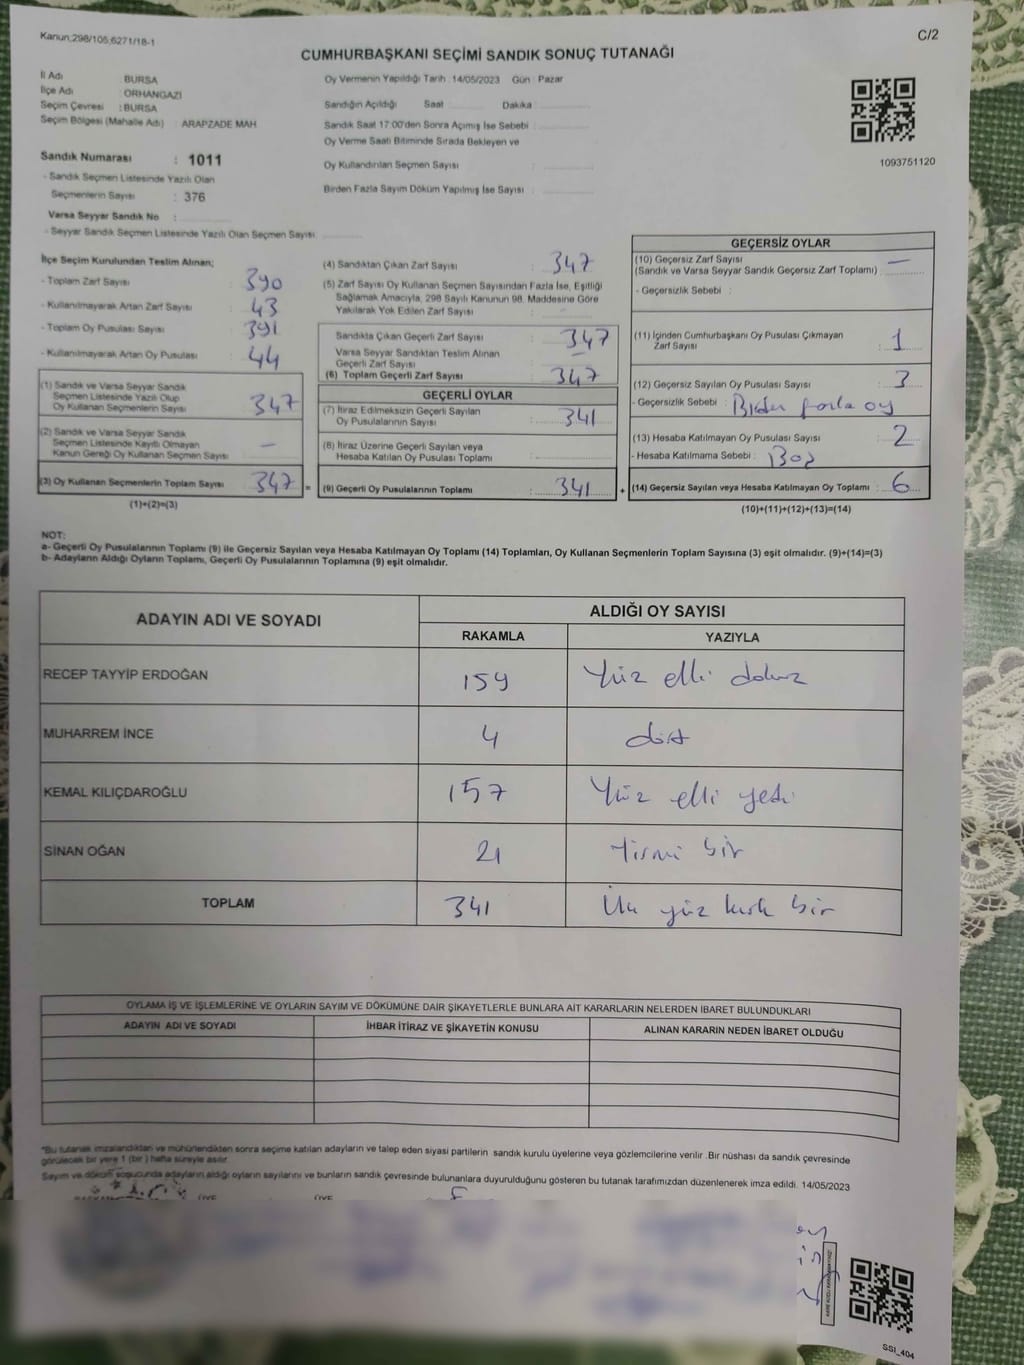 Kanun,298/105,6271/18-1
C/2
CUMHURBAŞKANI SEÇİMİ SANDIK SONUÇ TUTANAĞI
İl Adı : BURSA
İlçe Adı : ORHANGAZİ
Seçim Çevresi : BURSA
Seçim Bölgesi (Mahalle Adı) : ARAPZADE MAH
Sandık Numarası : 1011
- Sandık Seçmen Listesinde Yazılı Olan
Seçmenlerin Sayısı : 376
Varsa Seyyar Sandık No :
- Seyyar Sandık Seçmen Listesinde Yazılı Olan Seçmen Sayısı:
Oy Vermenin Yapıldığı Tarih : 14/05/2023 Gün : Pazar
Sandığın Açıldığı Saat Dakika
Sandık Saat 17:00'den Sonra Açımış İse Sebebi :
Oy Verme Saati Bitiminde Sırada Bekleyen ve
Oy Kullandırılan Seçmen Sayısı :
Birden Fazla Sayım Döküm Yapılmış İse Sayısı :
1093751120
İlçe Seçim Kurulundan Teslim Alınan;
- Toplam Zarf Sayısı : 390
- Kullanılmayarak Artan Zarf Sayısı : 43
- Toplam Oy Pusulası Sayısı : 391
- Kullanılmayarak Artan Oy Pusulası : 44
(1) Sandık ve Varsa Seyyar Sandık
Seçmen Listesinde Yazılı Olup
Oy Kullanan Seçmenlerin Sayısı : 347
(2) Sandık ve Varsa Seyyar Sandık
Seçmen Listesinde Kayıtlı Olmayan
Kanun Gereği Oy Kullanan Seçmen Sayısı : —
(3) Oy Kullanan Seçmenlerin Toplam Sayısı : 347 =
(1)+(2)=(3)
(4) Sandıktan Çıkan Zarf Sayısı : 347
(5) Zarf Sayısı Oy Kullanan Seçmen Sayısından Fazla İse, Eşitliği
Sağlamak Amacıyla, 298 Sayılı Kanunun 98. Maddesine Göre
Yakılarak Yok Edilen Zarf Sayısı :
Sandıkta Çıkan Geçerli Zarf Sayısı : 347
Varsa Seyyar Sandıktan Teslim Alınan
Geçerli Zarf Sayısı :
(6) Toplam Geçerli Zarf Sayısı : 347
GEÇERLİ OYLAR
(7) İtiraz Edilmeksizin Geçerli Sayılan
Oy Pusulalarının Sayısı : 341
(8) İtiraz Üzerine Geçerli Sayılan veya
Hesaba Katılan Oy Pusulası Toplamı :
(9) Geçerli Oy Pusulalarının Toplamı : 341 +
GEÇERSİZ OYLAR
(10) Geçersiz Zarf Sayısı
(Sandık ve Varsa Seyyar Sandık Geçersiz Zarf Toplamı) : —
- Geçersizlik Sebebi :
(11) İçinden Cumhurbaşkanı Oy Pusulası Çıkmayan
Zarf Sayısı : 1
(12) Geçersiz Sayılan Oy Pusulası Sayısı : 3
- Geçersizlik Sebebi : Birden fazla oy
(13) Hesaba Katılmayan Oy Pusulası Sayısı : 2
- Hesaba Katılmama Sebebi : Boş
(14) Geçersiz Sayılan veya Hesaba Katılmayan Oy Toplamı : 6
(10)+(11)+(12)+(13)=(14)
NOT:
a- Geçerli Oy Pusulalarının Toplamı (9) ile Geçersiz Sayılan veya Hesaba Katılmayan Oy Toplamı (14) Toplamları, Oy Kullanan Seçmenlerin Toplam Sayısına (3) eşit olmalıdır. (9)+(14)=(3)
b- Adayların Aldığı Oyların Toplamı, Geçerli Oy Pusulalarının Toplamına (9) eşit olmalıdır.
ADAYIN ADI VE SOYADI ALDIĞI OY SAYISI
RAKAMLA YAZIYLA
RECEP TAYYİP ERDOĞAN 159 Yüz elli dokuz
MUHARREM İNCE 4 dört
KEMAL KILIÇDAROĞLU 157 Yüz elli yedi
SİNAN OĞAN 21 Yirmi bir
TOPLAM 341 Üç yüz kırk bir
OYLAMA İŞ VE İŞLEMLERİNE VE OYLARIN SAYIM VE DÖKÜMÜNE DAİR ŞİKAYETLERLE BUNLARA AİT KARARLARIN NELERDEN İBARET BULUNDUKLARI
ADAYIN ADI VE SOYADI İHBAR İTİRAZ VE ŞİKAYETİN KONUSU ALINAN KARARIN NEDEN İBARET OLDUĞU
*Bu tutanak imzalandıktan ve mühürlendikten sonra seçime katılan adayların ve talep eden siyasi partilerin sandık kurulu üyelerine veya gözlemcilerine verilir .Bir nüshası da sandık çevresinde
görülecek bir yere 1 (bir ) hafta süreyle asılır.
Sayım ve döküm sonucunda adayların aldığı oyların sayılarını ve bunların sandık çevresinde bulunanlara duyurulduğunu gösteren bu tutanak tarafımızdan düzenlenerek imza edildi. 14/05/2023
ÜYE ÜYE
SSI_404